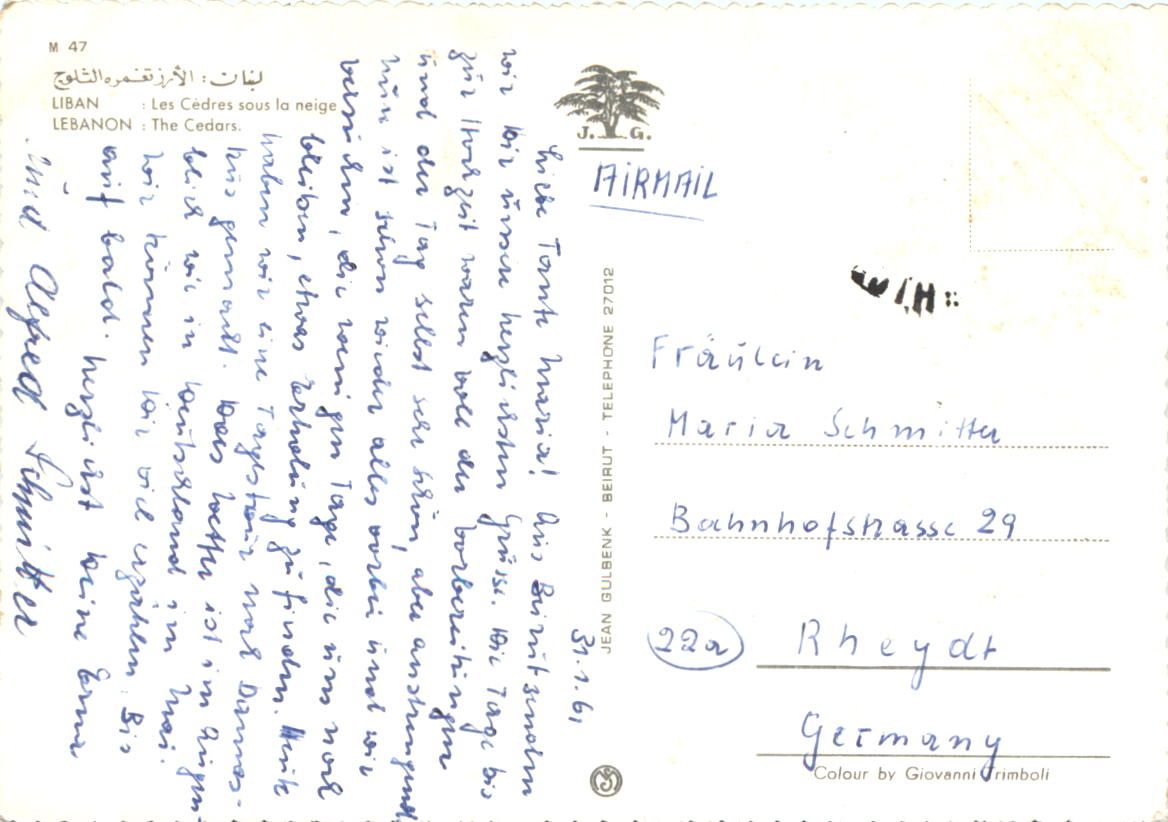 M 47
لبنان : الأرز تغمره الثلوج
LIBAN : Les Cèdres sous la neige
LEBANON : The Cedars.
31.1.61
Liebe Tante Maria! Aus Beirut senden
wir Dir unsere herzlichsten Grüsse. Die Tage bis
zur Hochzeit waren voll der Vorbereitungen
und der Tag selbst sehr schön, aber anstrengend
Nun ist schon wieder alles vorbei und wir
versuchen, die wenigen Tage, die uns noch
bleiben, etwas Erholung zu finden. Heute
haben wir eine Tagestour nach Damas-
kus gemacht. Das Wetter ist im Augen-
blick wie in Deutschland im Mai.
Wir können Dir viel erzählen. Bis
auf bald. Herzlichst Deine Erna
Und Alfred Schmitter
J. G.
AIRMAIL
JEAN GULBENK - BEIRUT - TELEPHONE 27012
Fräulein
Maria Schmitter
Bahnhofstrasse 29
22a Rheydt
Germany
Colour by Giovanni Trimboli